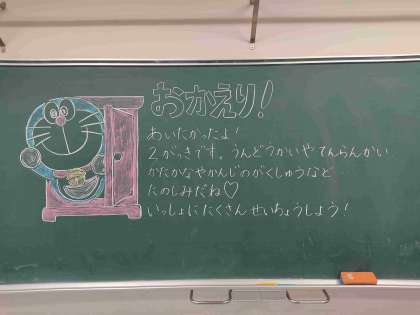 おかえり!
あいたかったよ!
2がっきです。うんどうかいや てんらんかい
かたかなやかんじのがくしゅうなど…
たのしみだね♡
いっしょにたくさん せいちょうしよう!